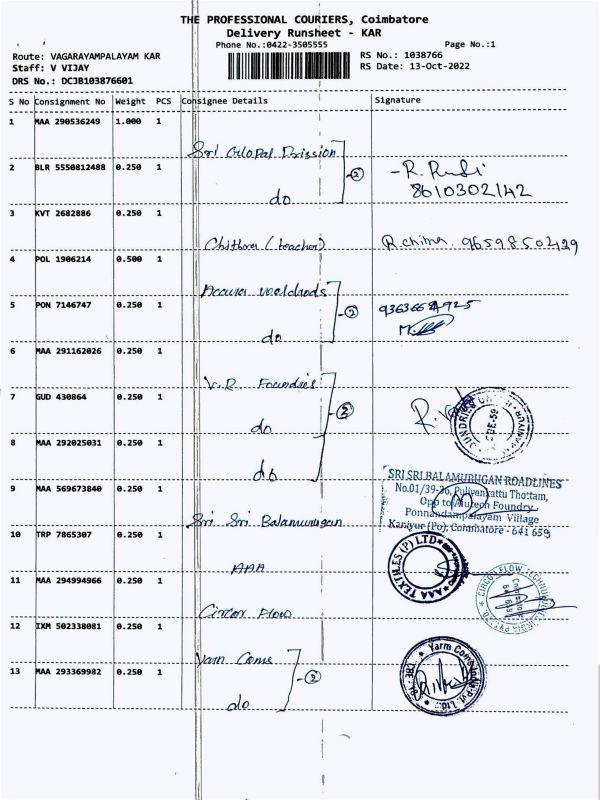 THE PROFESSIONAL COURIERS, Coimbatore
Delivery Runsheet - KAR
Phone No.:0422-3505555 Page No.:1
Route: VAGARAYAMPALAYAM KAR RS No.: 1038766
Staff: V VIJAY RS Date: 13-Oct-2022
DRS No.: DCJB103876601
S No Consignment No Weight PCS Consignee Details Signature
1 MAA 290536249 1.000 1
Sri
2 BLR 5550812488 0.250 1 2 -R.
do 8610302142
3 KVT 2682886 0.250 1
Chithra (teacher) R.chitra 9659850429
4 POL 1906214 0.500 1
5 PON 7146747 0.250 1 2
do
6 MAA 291162026 0.250 1
V.R. Foundries
7 GUD 430864 0.250 1
do
8 MAA 292025031 0.250 1
do
SRI SRI BALAMURUGAN ROADLINES
9 MAA 569673840 0.250 1 No.01/39-36, Puliyenkattu Thottam,
Opp to Alutech Foundry
Sri. Sri Balamurugan Ponnandampalayam Village
Kaniyur (Po), Coimbatore - 641 659
10 TRP 7865307 0.250 1
AAA AAA TEXTILES (P) LTD
11 MAA 294994966 0.250 1
Circor Flow CIRCOR FLOW TECHNOLOGIES INDIA PVT LTD
12 IXM 502338081 0.250 1
Yarn Coms Yarn Coms India Pvt. Ltd.
13 MAA 293369982 0.250 1 2
do